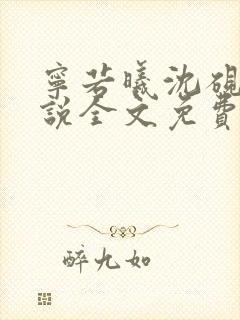 寧若曦沈硯
說全文免費
醉九如